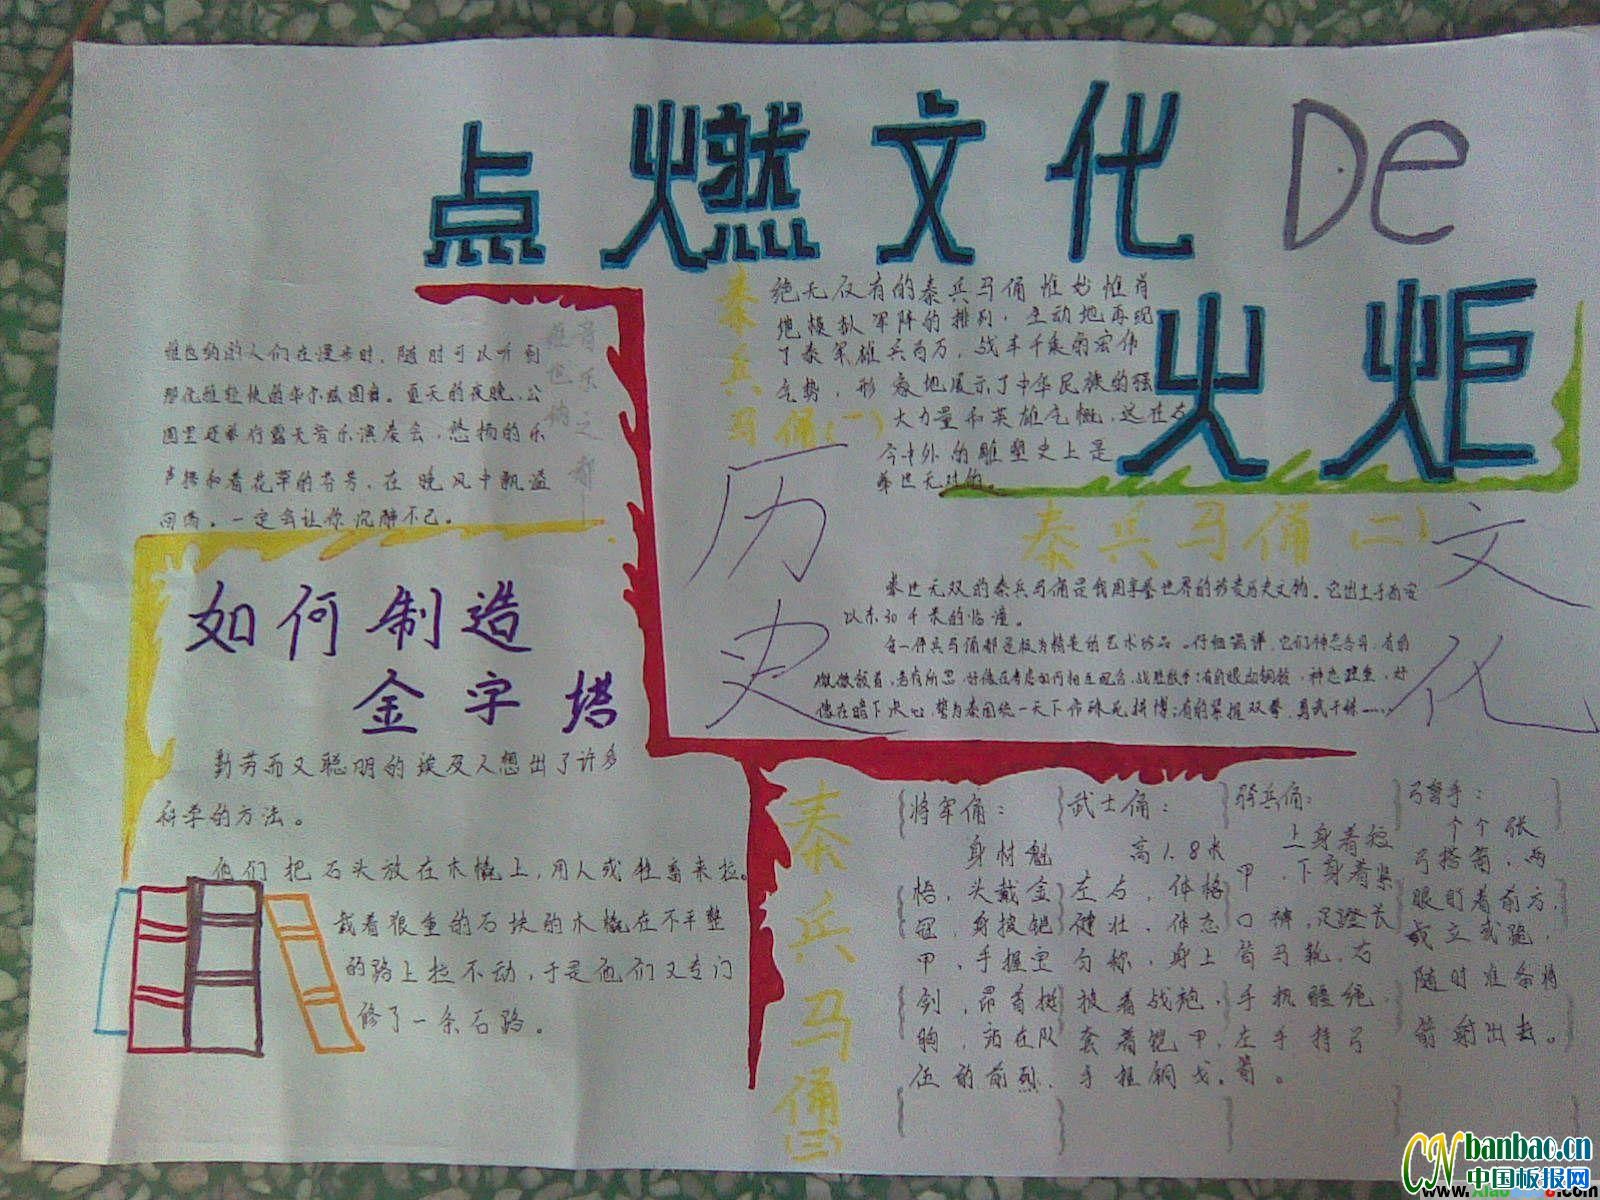 点燃文化De
火炬
音乐之都
维也纳
维也纳的人们在漫步时，随时可以听到
那优雅轻快的华尔兹圆舞。夏天的夜晚，公
园里还举行露天音乐演奏会，悠扬的乐
声掺和着花草的芬芳，在晚风中飘溢
回荡。一定会让你沉醉不已。
秦兵马俑(一)
绝无仅有的秦兵马俑惟妙惟肖
地模拟军阵的排列，生动地再现
了秦军雄兵百万，战车千乘的宏伟
气势，形象地展示了中华民族的强
大力量和英雄气概，这在古
今中外的雕塑史上是
举世无对的。
历史
文化
秦兵马俑(二)
举世无双的秦兵马俑是我国享誉世界的珍贵历史文物。它出土于西安
以东30千米的临潼。
每一件兵马俑都是极为精美的艺术珍品。仔细端详，它们神态各异：有的
微微颔首，若有所思，好像在考虑如何相互配合，战胜敌手；有的眼如铜铃，神态庄重，好
像在暗下决心，誓为秦国统一天下作殊死拼搏；有的紧握双拳，勇武干练……
如何制造
金字塔
勤劳而又聪明的埃及人想出了许多
科学的方法。
他们把石头放在木橇上，用人或牲畜来拉。
载着很重的石块的木橇在不平整
的路上拉不动，于是他们又专门
修了一条石路。
秦兵马俑(三)
将军俑：
身材魁
梧，头戴金
冠，身披铠
甲，手握宝
剑，昂首挺
胸，站在队
伍的前列。
武士俑：
高1.8米
左右，体格
健壮，体态
匀称，身上
披着战袍，
套着铠甲，
手握铜戈。
骑兵俑：
上身着短
甲，下身着紧
口裤，足蹬长
筒马靴，右
手执疆绳，
左手持弓
箭。
弓弩手：
个个张
弓搭箭，两
眼盯着前方，
或立或跪，
随时准备将
箭射出去。
CN banbao.cn
中国板报网